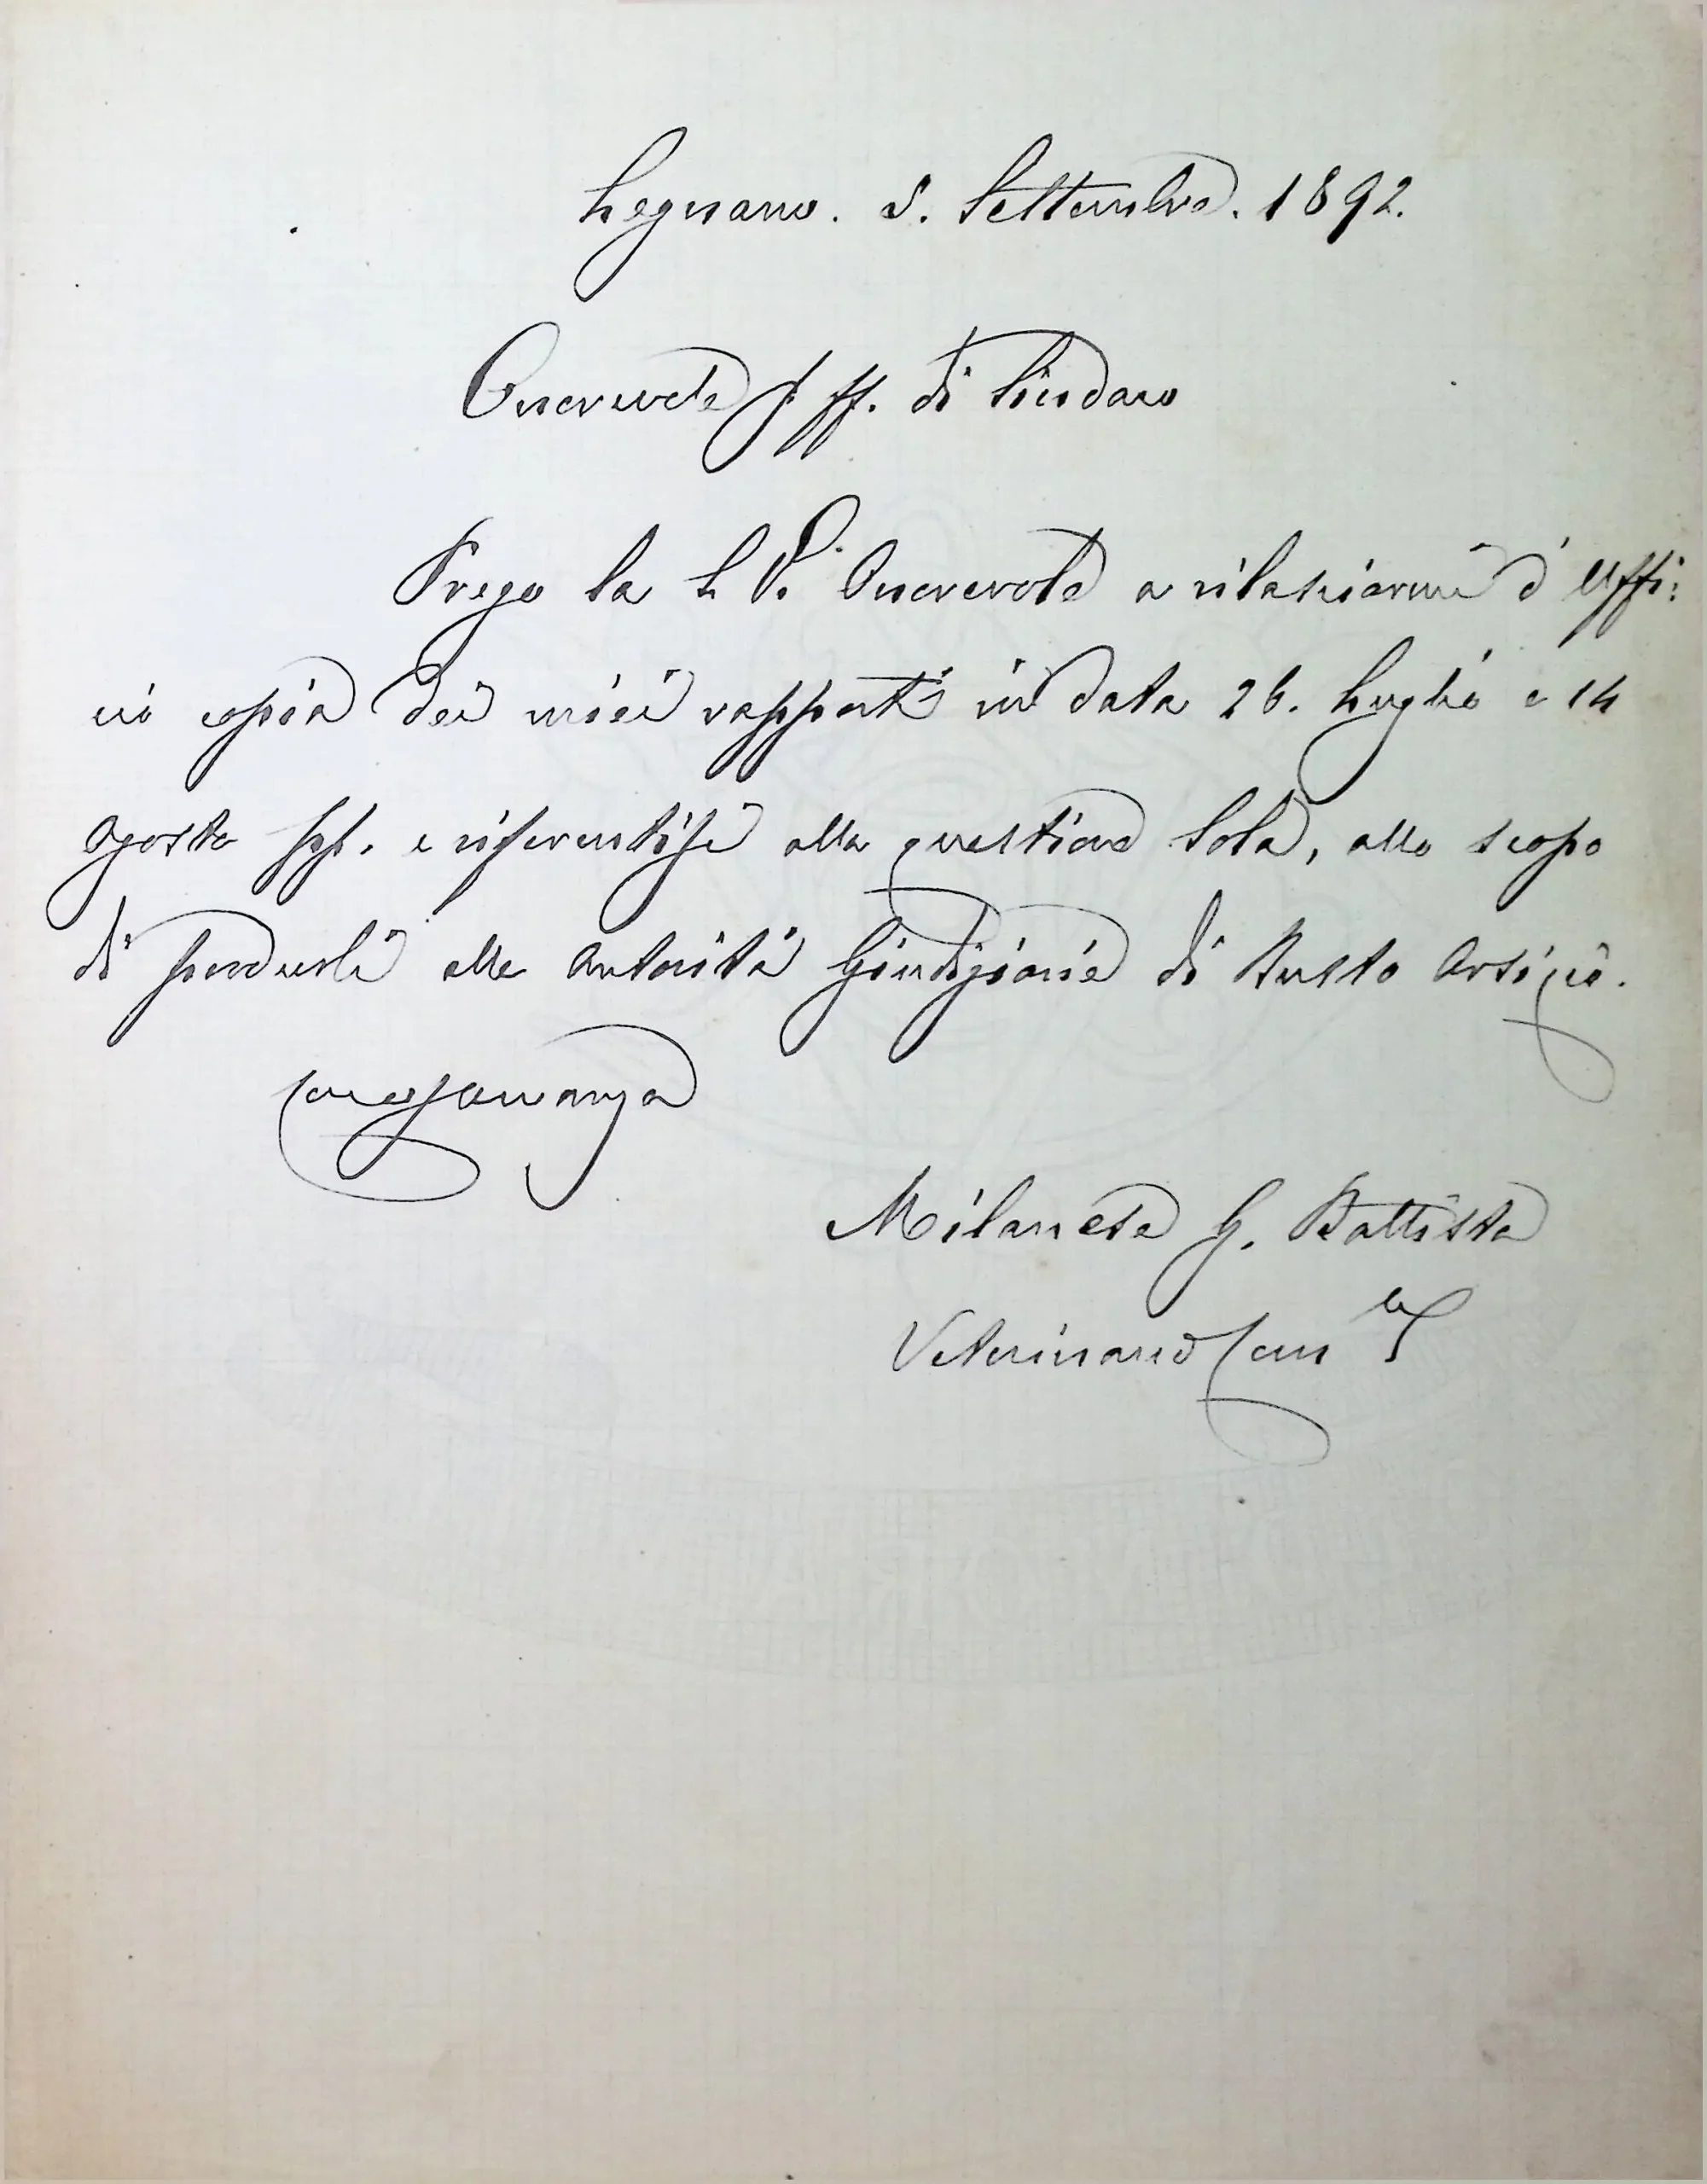 Legnano. 5. Settembre. 1892.
Onorevole f. ff. di Sindaco
Prego la L. V. Onorevole a rilasciarmi d'Uffi:
cio copia dei miei rapporti in data 26. Luglio e 14
Agosto pp. e riferentisi alla questione Sola, allo scopo
di produrli alle Autorità Giudiziarie di Busto Arsizio.
Con osservanza
Milanese G. Battista
Veterinario Com le